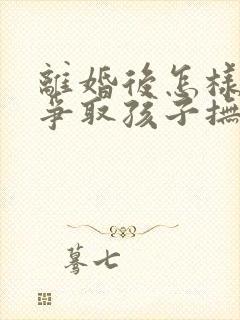 離婚後怎樣
爭取孩子撫
驀七